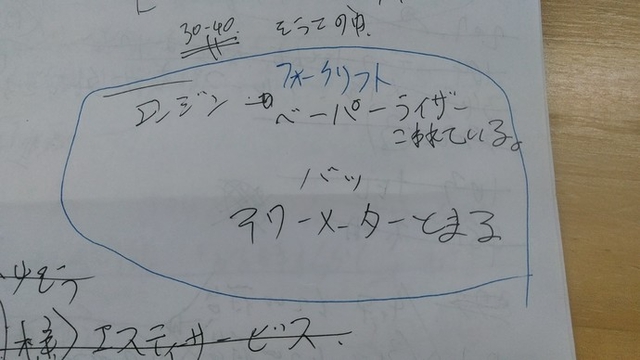 30-40.
フォークリフト
エンジン → ベーパーライザー
こわれている。
バッ
アワーメーターとまる
様) エスティサービス.